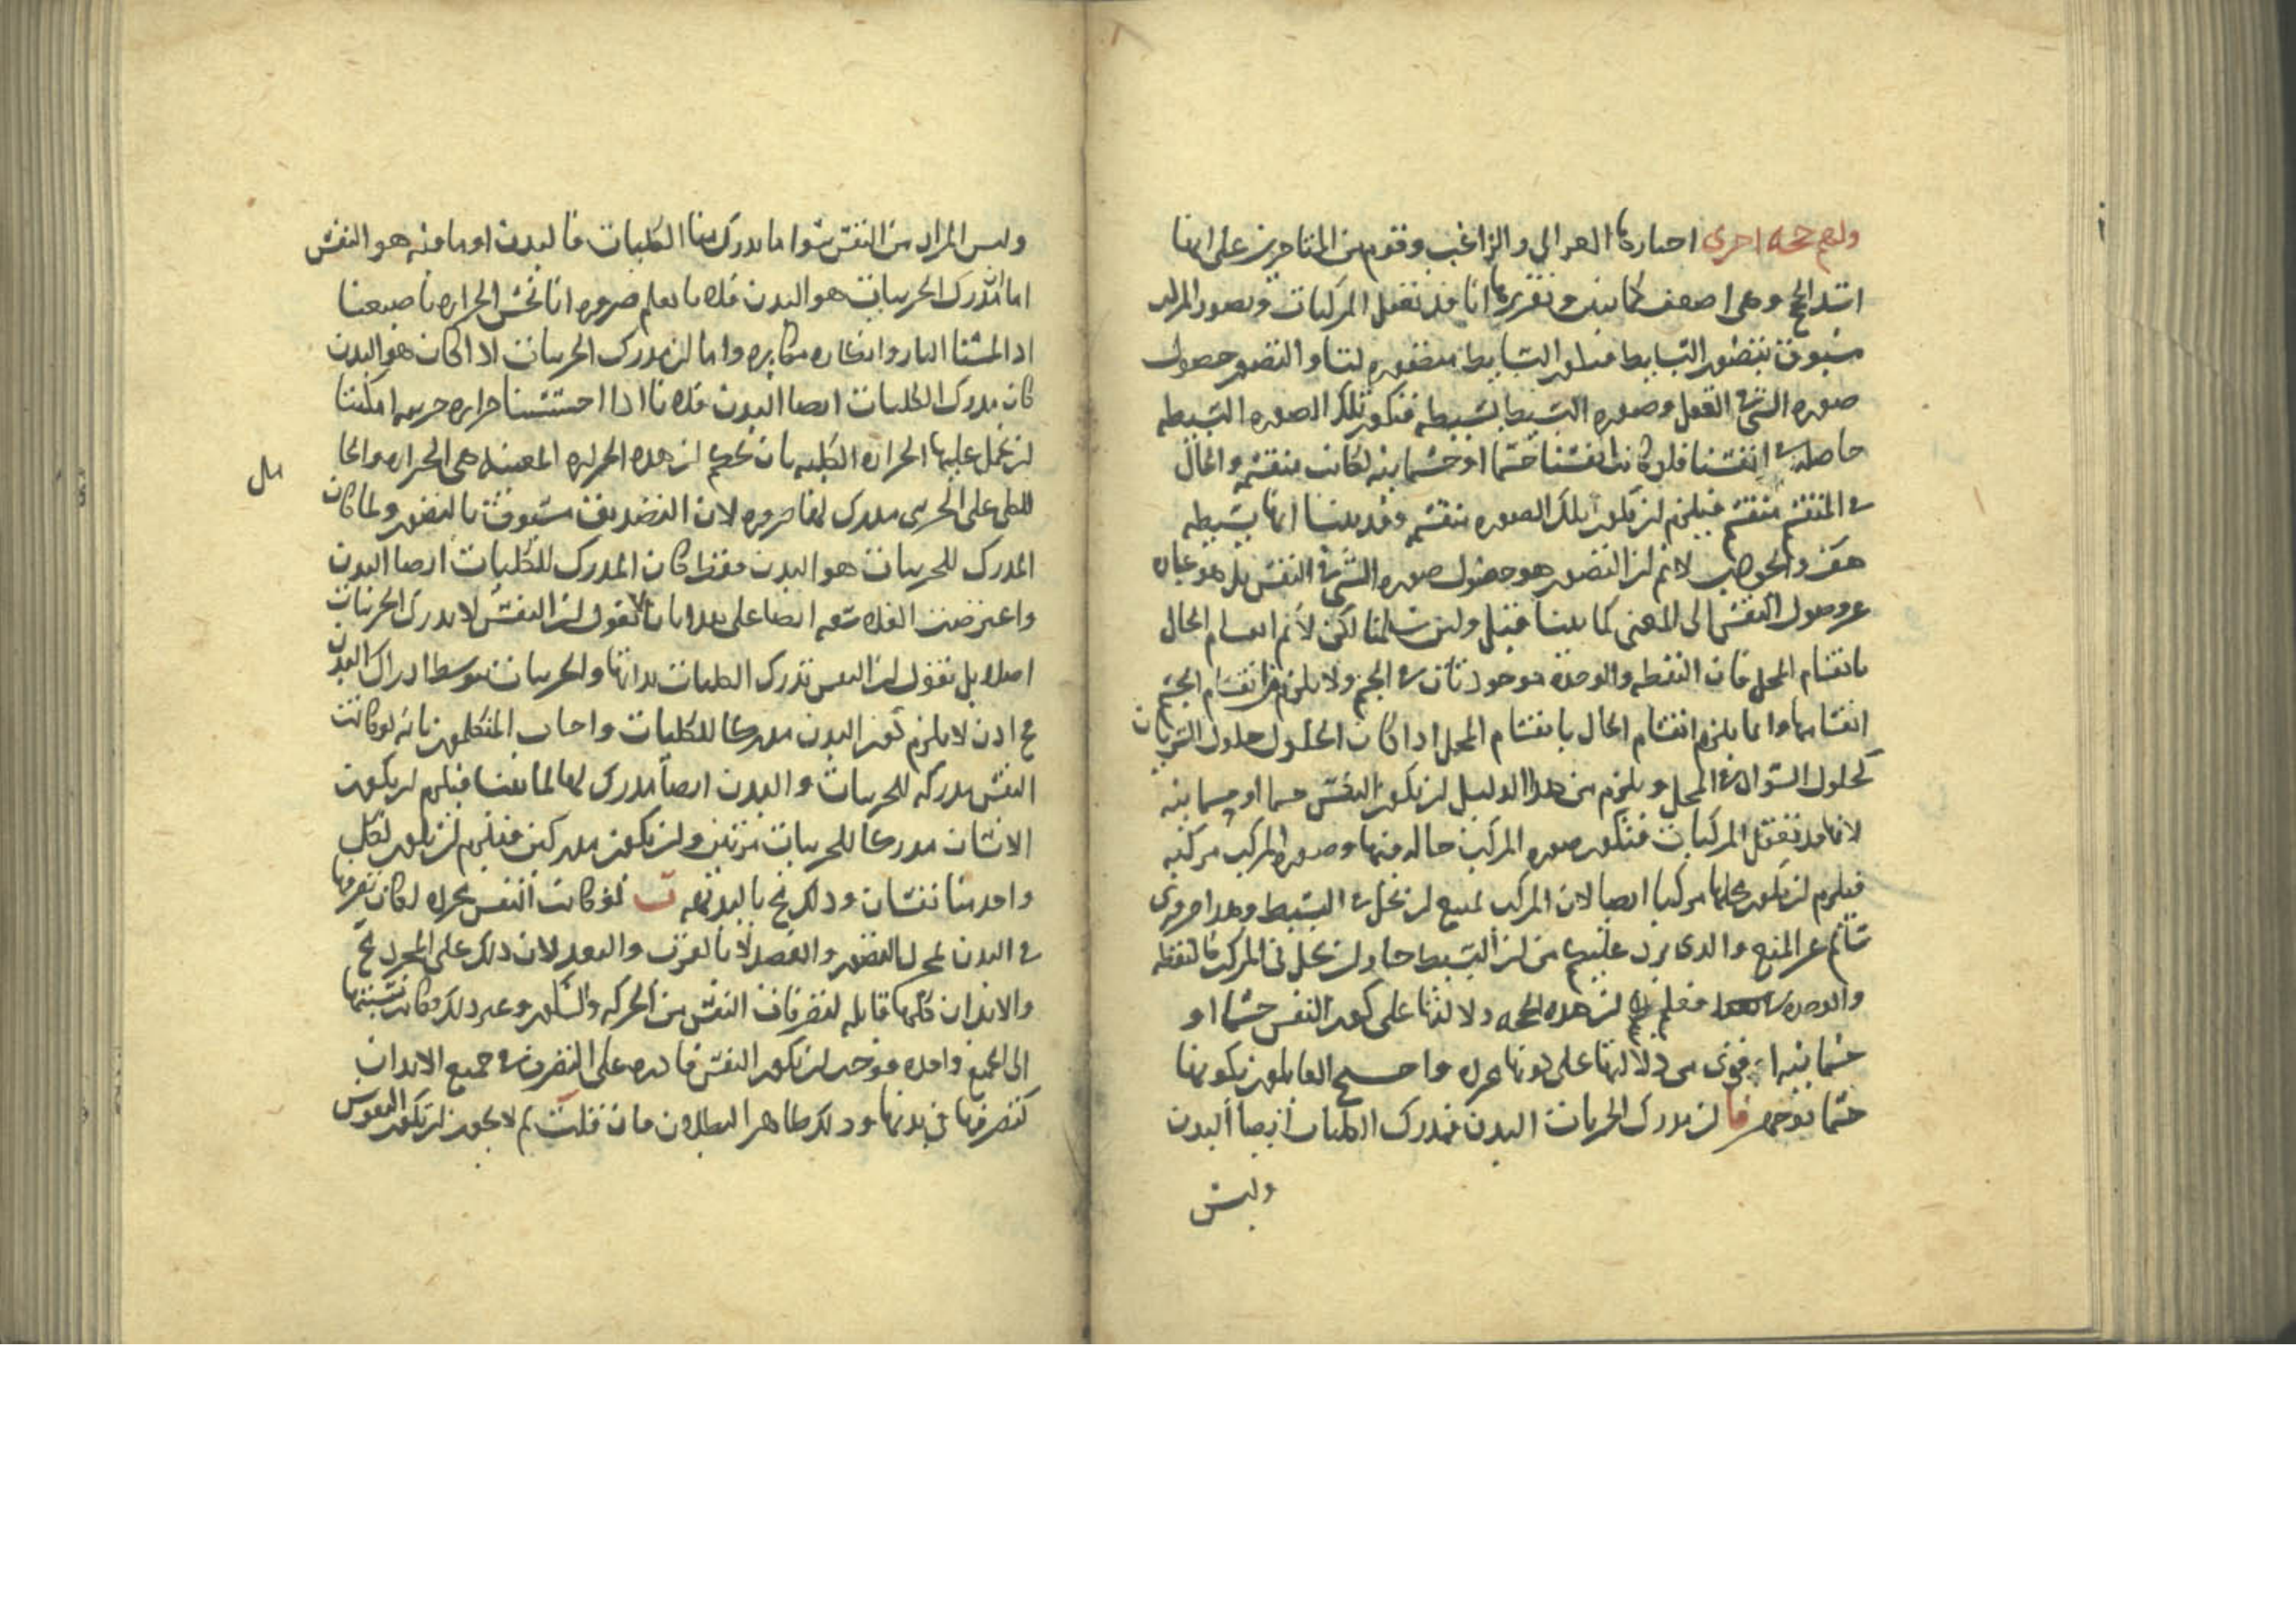 ولهم حجة اخرى اختارها الغزالى والراغب وقوم من المتاخرين على انها
اسد الحجج وهى اضعف كما نبين وتقريرها انا قد نعقل المركبات وتصور المركب
مسبوق بتصور البسايط فتكون البسايط متصوره لنا والتصور حصول
صوره الشى فى العقل وصوره البسيط بسيطه فتكون تلك الصوره البسيطه
حاصله فى انفسنا فلو كانت انفسنا جسما او جسمانيه لكانت منقسمه والحال
فى المنقسم منقسم فيلزم ان تكون تلك الصوره منقسمه وقد بينا انها بسيطه
هف والجواب لانم ان التصور هو حصول صوره الشى فى النفس بل هو عباره
عن وصول النفس الى المعنى كما بينا قبل ولئن سلمنا لكن لانم انقسام الحال
بانقسام المحل فان النقطه والوحده موجودتان فى الجسم ولا يلزم من انقسام الجسم
انقسامها وانما يلزم انقسام الحال بانقسام المحل اذا كان الحلول حلول السريان
كحلول السواد فى المحل ويلزم من هذا الدليل ان تكون النفس جسما او جسمانيه
لانها قد تعقل المركبات فتكون صوره المركب حاله فيها وصوره المركب مركبه
فيلزم ان تكون محلها مركبا ايضا لان المركب يمتنع ان يحل فى البسيط وهذا ضرورى
سالم عن المنع والذى يرد عليهم من ان البسيط جاز ان يحل فى المركب كالنقطه
والوحده فعلم ان هذه الحجه دلالتها على كون النفس جسما او
جسمانيه اقوى من دلالتها على كونها مجرده واحتج القايلون بكونها
جسما بوجوه فا ان مدرك الجزيات البدن فمدرك الكليات ايضا البدن
وليس
وليس المراد من النفس سوا ما يدرك منا الكليات فالبدن او ما فيه هو النفس
اما ان مدرك الجزييات هو البدن فلانا نعلم ضروره انا نحس الحراره باصبعنا
اذا لمسنا النار وانكاره مكابره واما ان مدرك الجزييات لما كان هو البدن
كان مدرك الكليات ايضا البدن فلانا اذا احسسنا حراره جزييه امكننا
ان نحمل عليها الحراره الكليه بان نحكم ان هذه الحراره المعينه هى الحراره والحا
مل
للكلى على الجزيى مدرك لهما ضروره لان التصديق مسبوق بالتصور ولما كان
المدرك للجزييات هو البدن فقط كان المدرك للكليات ايضا البدن
واعترضت الفلاسفه ايضا على هذا بانا لا نقول ان النفس لا تدرك الجزييات
اصلا بل نقول ان النفس تدرك الكليات بذاتها والجزييات بتوسط ادراك البدن
فح اذن لا يلزم كون البدن مدركا للكليات واجاب المتكلمون بانه لو كانت
النفس مدركه للجزييات والبدن ايضا مدرك لها لما بينا فيلزم ان يكون
الانسان مدركا للجزييات مرتين وان يكون مدركين فيلزم ان يكون لكل
واحد منا نفسان وذلك مح بالبديهه ب لو كانت النفس مجرده لكان تصرفها
فى البدن بمجرد التصور والقصد لا بالقرب والبعد لان ذلك على المجرد مح
والابدان كلها قابله لتصرفات النفس من الحركه والسكون وغير ذلك فكانت نسبتها
الى الجميع واحده فوجب ان تكون النفس قادره على التصرف فى جميع الابدان
كتصرفها فى بدنها وذلك ظاهر البطلان فان قلت لم لا يجوز ان تكون النفوس